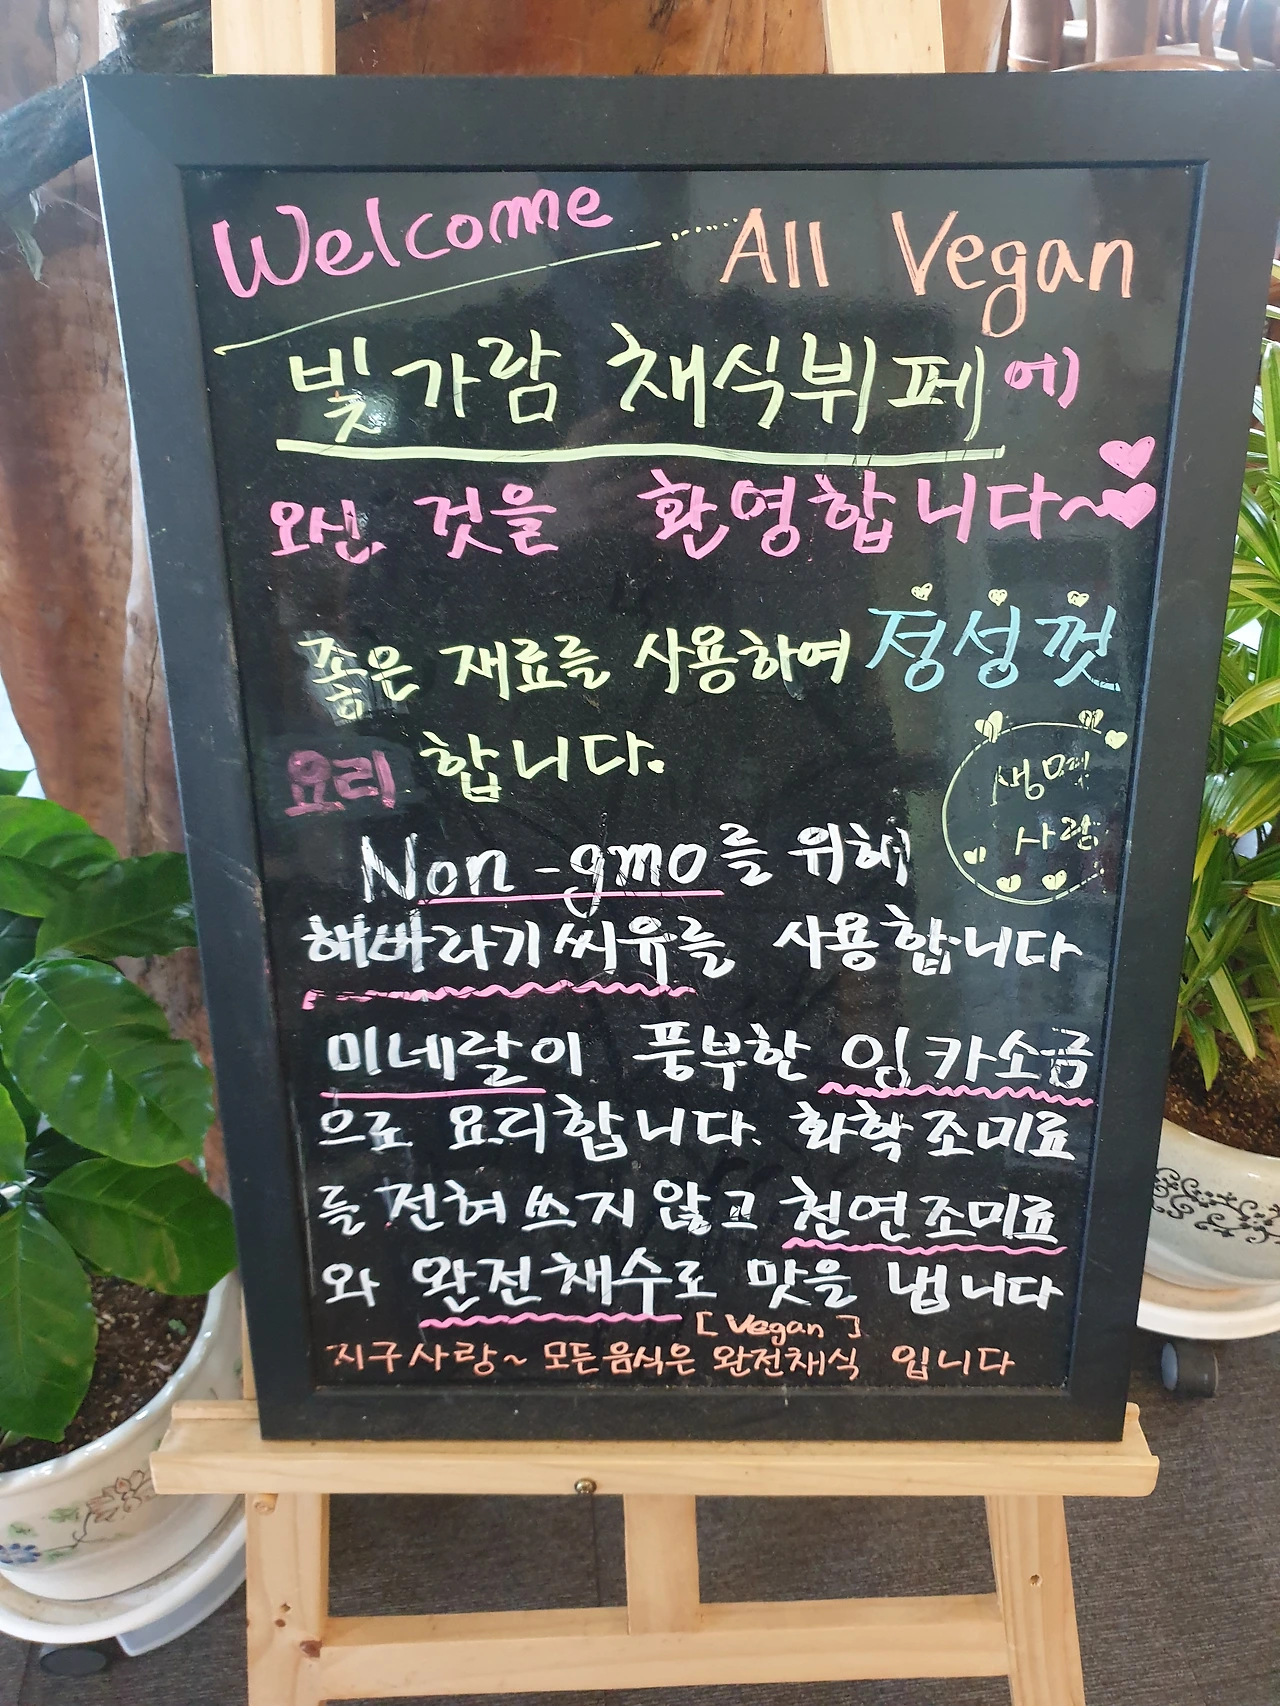 Welcome ...... All Vegan
빛가람 채식뷔페에
오신 것을 환영합니다~♥♥
좋은 재료를 사용하여 정성껏
요리 합니다.
생명
사랑
Non-gmo를 위해
해바라기씨유를 사용합니다
미네랄이 풍부한 잉카소금
으로 요리합니다. 화학조미료
를 전혀 쓰지 않고 천연조미료
와 완전채수로 맛을 냅니다
[Vegan]
지구사랑~ 모든음식은 완전채식 입니다